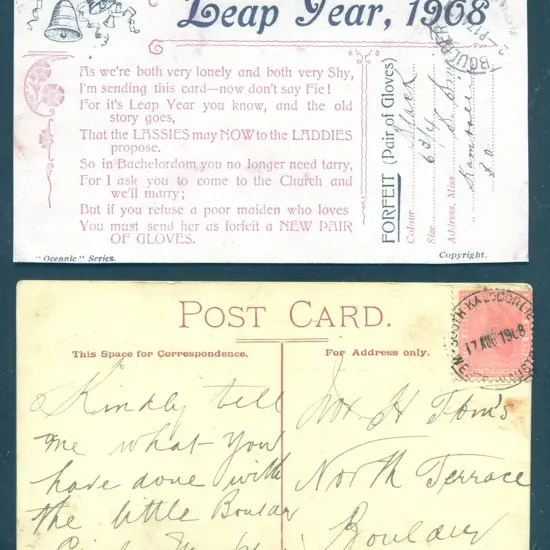 Leap Year, 1908
BOULDER
As we're both very lonely and both very Shy,
I'm sending this card—now don't say Fie!
For it's Leap Year you know, and the old
story goes,
That the LASSIES may NOW to the LADDIES
propose.
So in Bachelordom you no longer need tarry,
For I ask you to come to the Church and
we'll marry;
But if you refuse a poor maiden who loves
You must send her as forfeit a NEW PAIR
OF GLOVES.
FORFEIT (Pair of Gloves)
Colour Black
Size 6 3/4
Address, Miss
"Oceanic" Series.
Copyright.
POST CARD.
This Space for Correspondence.
For Address only.
SOUTH KALGOORLIE
17 AUG 1908
Kindly tell
me what you
have done with
the little Boulder
H Tom's
North Terrace
Boulder